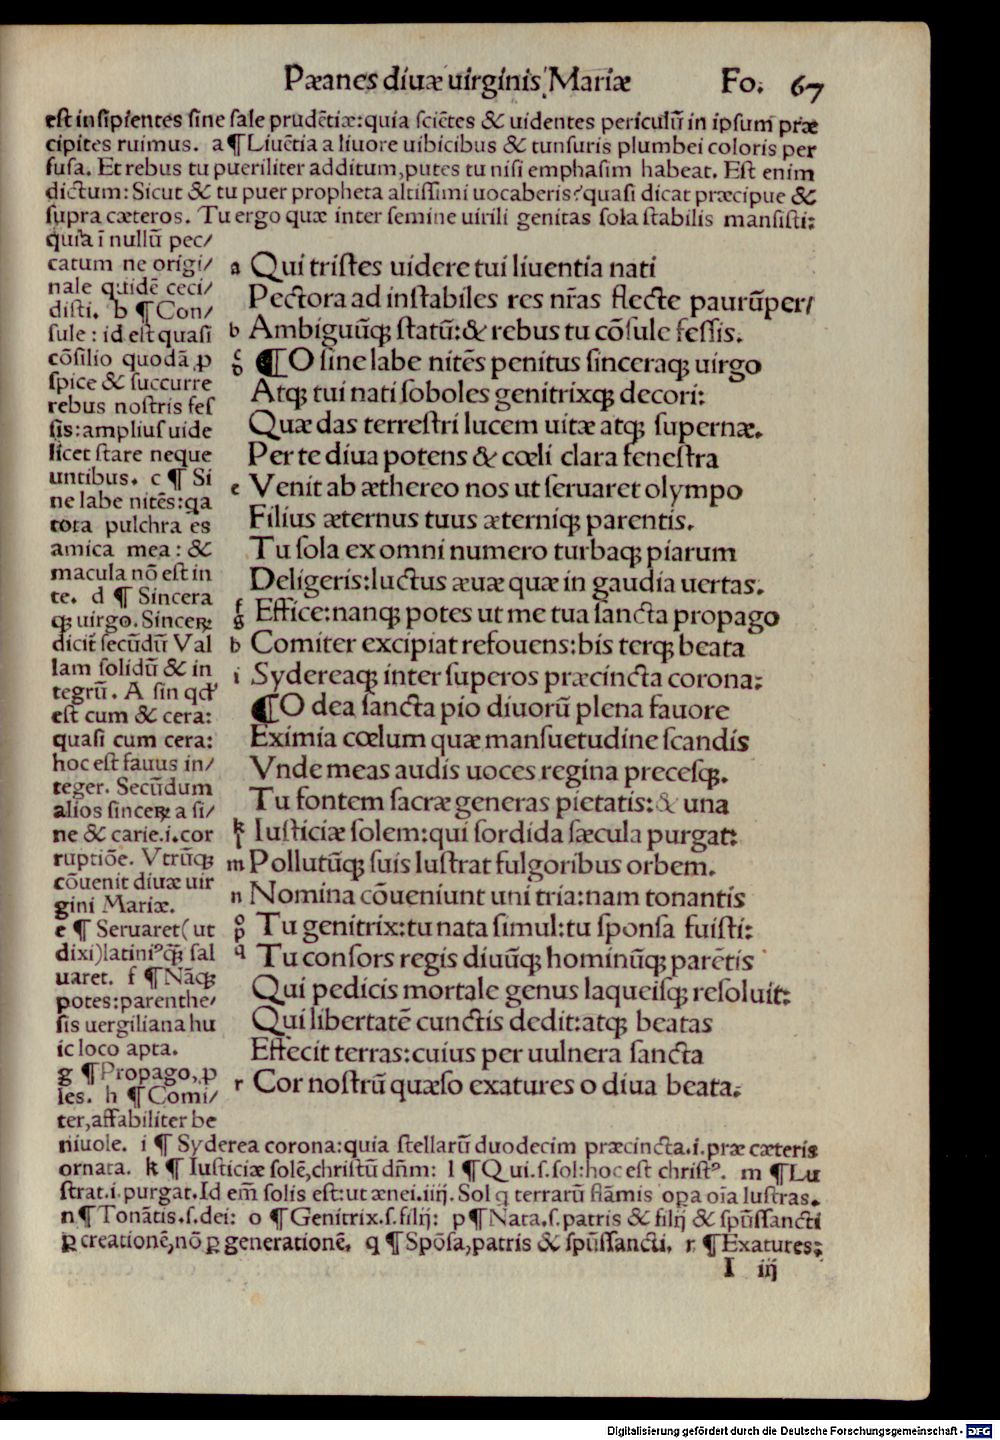 Pæanes diuæ uirginis Mariæ Fo. 67
est insipientes sine sale prudētiæ:quia sciētes & uidentes periculū in ipsum præ
cipites ruimus. a ¶ Liuētia a liuore uibicibus & tunsuris plumbei coloris per
fusa. Et rebus tu pueriliter additum,putes tu nisi emphasim habeat. Est enim
dictum: Sicut & tu puer propheta altissimi uocaberis: quasi dicat præcipue &
supra cæteros. Tu ergo quæ inter semine uirili genitas sola stabilis mansisti:
quia ī nullū pec/
catum ne origi/
nale quidē ceci/
disti. b ¶ Con/
sule : id est quasi
cōsilio quodā ꝓ
spice & succurre
rebus nostris fes
sis:amplius uide
licet stare neque
untibus. c ¶ Si
ne labe nitēs:qa
tota pulchra es
amica mea : &
macula nō est in
te. d ¶ Sincera
qꝫ uirgo. Sinceꝝ
dicit̄ secūdū Val
lam solidū & in
tegrū. A sin qđ
est cum & cera:
quasi cum cera:
hoc est fauus in/
teger. Secūdum
alios sinceꝝ a si/
ne & carie.i.cor
ruptiōe. Vtrūqꝫ
cōuenit diuæ uir
gini Mariæ.
e ¶ Seruaret( ut
dixi)latiniꝰ qꝫ̄ sal
uaret. f ¶ Nāqꝫ
potes:parenthe/
sis uergiliana hu
ic loco apta.
g ¶ Propago, ꝓ
les. h ¶ Comi/
ter,affabiliter be
a Qui tristes uidere tui liuentia nati
Pectora ad instabiles res nr̄as flecte paurūper/
b Ambiguūqꝫ statū:& rebus tu cōsule fessis.
c d ¶ O sine labe nitēs penitus sinceraqꝫ uirgo
Atqꝫ tui nati soboles genitrixqꝫ decori:
Quæ das terrestri lucem uitæ atqꝫ supernæ.
Per te diua potens & cœli clara fenestra
e Venit ab æthereo nos ut seruaret olympo
Filius æternus tuus æterniqꝫ parentis.
Tu sola ex omni numero turbaqꝫ piarum
Deligeris:luctus æuæ quæ in gaudia uertas.
f g Effice:nanqꝫ potes ut me tua sancta propago
h Comiter excipiat refouens:bis terqꝫ beata
i Sydereaqꝫ inter superos præcincta corona:
¶ O dea sancta pio diuorū plena fauore
Eximia cœlum quæ mansuetudine scandis
Vnde meas audis uoces regina precesqꝫ.
Tu fontem sacræ generas pietatis:& una
k l Iusticiæ solem:qui sordida sæcula purgat:
m Pollutūqꝫ suis lustrat fulgoribus orbem.
n Nomina cōueniunt uni tria:nam tonantis
o p Tu genitrix:tu nata simul:tu sponsa fuisti:
q Tu consors regis diuūqꝫ hominūqꝫ parētis
Qui pedicis mortale genus laqueisqꝫ resoluit:
Qui libertatē cunctis dedit:atqꝫ beatas
Effecit terras:cuius per uulnera sancta
r Cor nostrū quæso exatures o diua beata.
niuole. i ¶ Syderea corona:quia stellarū duodecim præcincta.i.præ cæteris
ornata. k ¶ Iusticiæ solē,christū dn̄m: l ¶ Qui.s.sol:hoc est christꝰ. m ¶ Lu
strat.i.purgat.Id em̄ solis est:ut ænei.iiij. Sol q terrarū flāmis oꝑa oīa lustras.
n ¶ Tonātis.s.dei: o ¶ Genitrix.s.filij: p ¶ Nata.s.patris & filij & spūssancti
ꝑ creationē,nō ꝑ generationē. q ¶ Spōsa,patris & spūssancti. r ¶ Exatures:
I iij
Digitalisierung gefördert durch die Deutsche Forschungsgemeinschaft - DFG